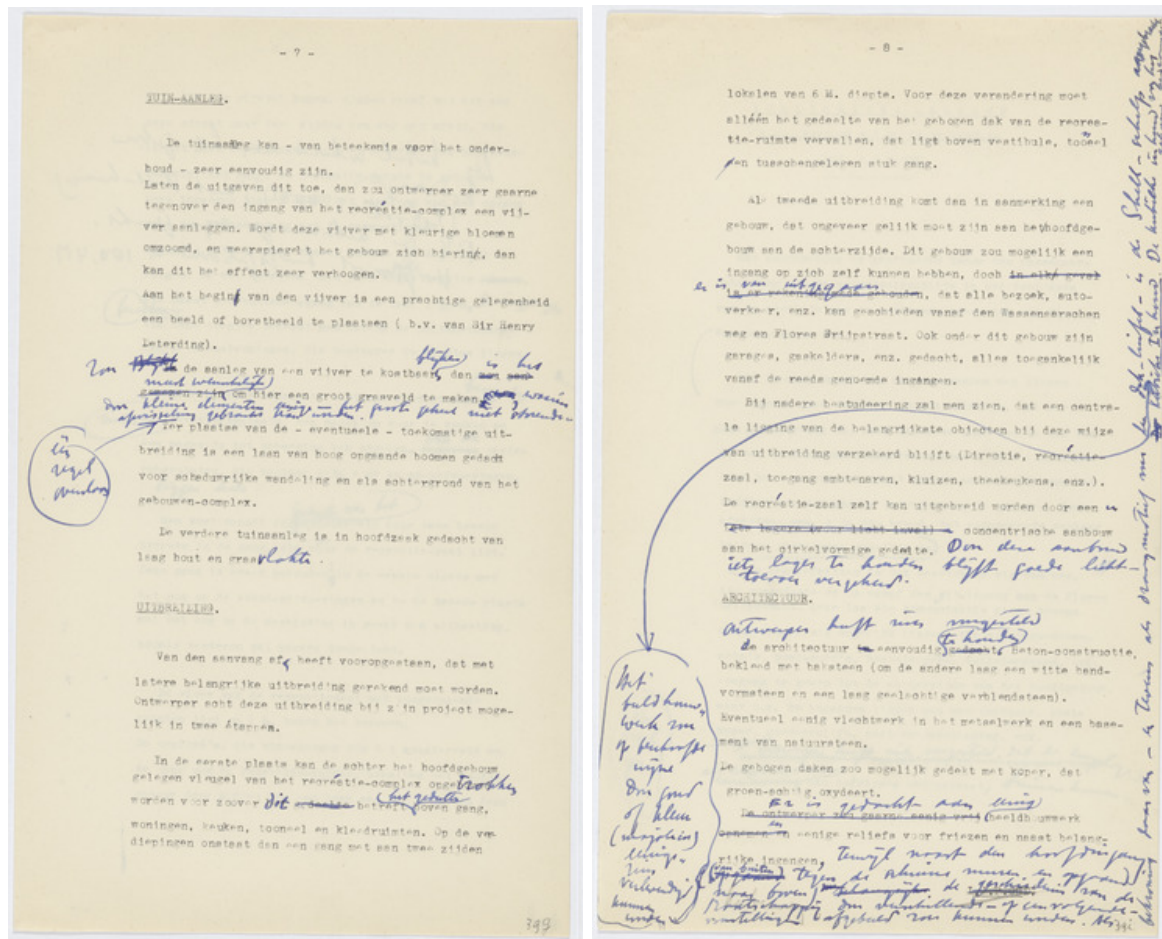 - 7 -
TUIN-AANLEG.
De tuinaanleg kan - van beteekenis voor het onder-
houd - zeer eenvoudig zijn.
Laten de uitgaven dit toe, dan zou ontwerper zeer gaarne
tegenover den ingang van het recréatie-complex een vij-
ver aanleggen. Wordt deze vijver met kleurige bloemen
omzoomd, en weerspiegelt het gebouw zich hierin, dan
kan dit het effect zeer verhoogen.
Aan het begin van den vijver is een prachtige gelegenheid
een beeld of borstbeeld te plaatsen ( b.v. van Sir Henry
Deterding).
blijken is het
Zou de aanleg van een vijver te kostbaar, dan
meest wenschelijk
om hier een groot grasveld te maken, waarin
Ter plaatse van de - eventueele - toekomstige uit-
breiding is een laan van hoog opgaande boomen gedacht
voor schaduwrijke wandeling en als achtergrond van het
gebouwen-complex.
één
regel
overslaan
De verdere tuinaanleg is in hoofdzaak gedacht van
laag hout en grasvlakte.
UITBREIDING.
Van den aanvang af, heeft vooropgestaan, dat met
latere belangrijke uitbreiding gerekend moet worden.
Ontwerper acht deze uitbreiding bij z'n project moge-
lijk in twee étappen.
In de eerste plaats kan de achter het hoofdgebouw
gelegen vleugel van het recréatie-complex opgetrokken
worden voor zoover dit het gedeelte betreft boven gang,
woningen, keuken, tooneel en kleedruimten. Op de ver-
diepingen ontstaat dan een gang met aan twee zijden
399
- 8 -
lokalen van 6 M. diepte. Voor deze verandering moet
alléén het gedeelte van het gebogen dak van de recrea-
tie-ruimte vervallen, dat ligt boven vestibule, tooneel
en tusschengelegen stuk gang.
Als tweede uitbreiding komt dan in aanmerking een
gebouw, dat ongeveer gelijk moet zijn aan het hoofdge-
bouw aan de achterzijde. Dit gebouw zou mogelijk een
ingang op zich zelf kunnen hebben, doch in elk geval
er is van uitgegaan
is er rekening mede gehouden, dat alle bezoek, auto-
verkeer, enz. kan geschieden vanaf den Wassenaarschen
weg en Flores Grijpstraat. Ook onder dit gebouw zijn
garages, gaskelders, enz. gedacht, alles toegankelijk
vanaf de reeds genoemde ingangen.
Bij nadere bestudeering zal men zien, dat een centra-
le ligging van de belangrijkste objecten bij deze wijze
van uitbreiding verzekerd blijft (Directie, recréatie-
zaal, toegang ambtenaren, kluizen, theekeukens, enz.).
De recréatie-zaal zelf kan uitgebreid worden door een
concentrische aanbouw
aan het cirkelvormige gedeelte. Door deze aanbouw
iets lager te houden blijft goede licht-
toevoer verzekerd.
ARCHITECTUUR.
Ontwerper heeft zich voorgesteld
te houden
de architectuur eenvoudig gedacht. Beton-constructie,
bekleed met baksteen (om de andere laag een witte hand-
vormsteen en een laag geelachtige verblendsteen).
Eventueel eenig vlechtwerk in het metselwerk en een base-
ment van natuursteen.
De gebogen daken zoo mogelijk gedekt met koper, dat
groen-achtig oxydeert.
Er is gedacht aan eenig
De ontwerper zou gaarne eenig vrij (beeldhouwwerk
opnemen en eenige reliefs voor friezen en naast belang-
rijke ingangen, terwijl naast den hoofdingang
(van buiten) tegen de schuine muren en opgaand
naar boven de geschiedenis van de
Maatschappij door verschillende - opeenvolgende -
voorstellingen afgebeeld zou kunnen worden. Als
Het
beeldhouw-
werk zou
op beschaafde
wijze
door goud
of kleur
(majolica)
eenigs-
zins
verlevendigd
kunnen
worden